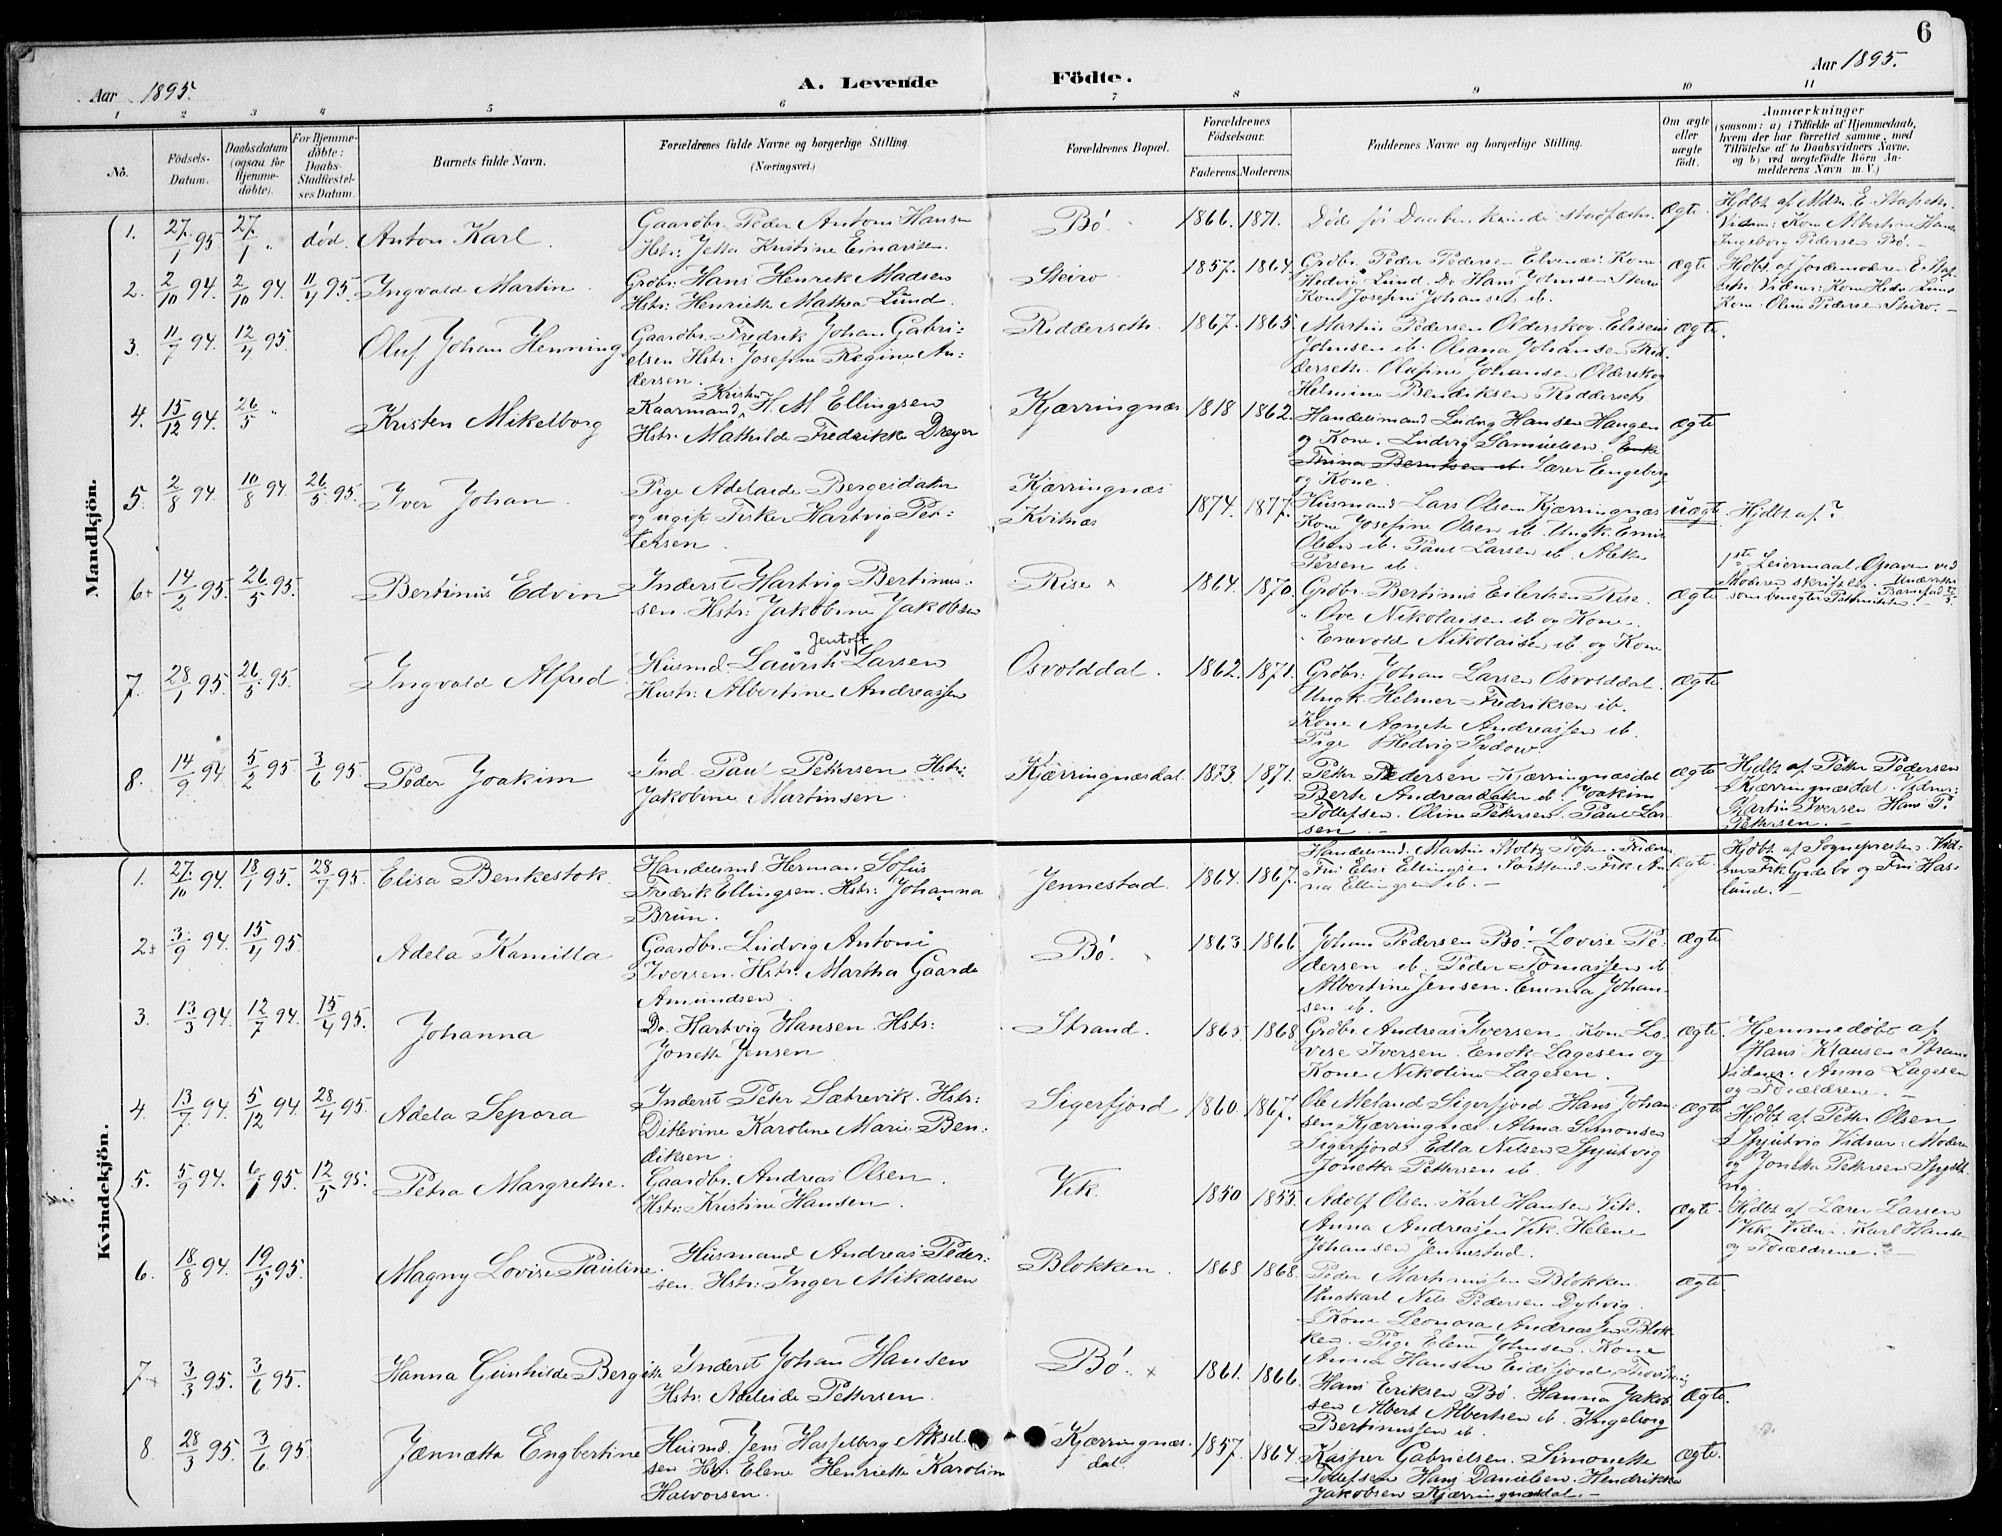 6
Aar 1895.
A. Levende Födte.
Aar 1895.
1 2 3 4 5 6 7 8 9 10 11
No.
Födsels-Datum.
Daabsdatum (ogsaa for Hjemmedöbte).
For Hjemmedöbte: Daabs-Stadfæstelses Datum.
Barnets fulde Navn.
Forældrenes fulde Navne og borgerlige Stilling. (Næringsvei.)
Forældrenes Bopæl.
Forældrenes Födselsaar.
Faderens. Moderens.
Faddernes Navne og borgerlige Stilling.
Om ægte eller uægte födt.
Anmærkninger
(saasom: a) i Tilfælde af Hjemmedaab, hvem der har forrettet samme, med Tilföielse af to Daabsvidners Navne, og b) ved uægtefödte Börn Anmelderens Navn m. V.)
Mandkjön.
1. 27/1 95 27/1 " død. Anton Karl.
Gaardbr. Peder Antoni Hansen
Hstr: Jetta Kristine Einarsen.
Bö. 1866. 1871.
Døde før Daaben
Ægte.
2. 2/10 94. 2/10 94. 11/4 95. Ingvald Martin.
Grdbr: Hans Henrik Madsen
Hstr: Henriette Mathea Lund.
Steiro 1857. 1864.
Grdbr. Peder Pedersen Elvenæs. Kone
Hedvig Lund. Do Hans Johnsen Steiro
Kone Josefine Johansen ib.
Ægte
3. 11/7 94. 12/4 95. Oluf Johan Henning
Gaardbr. Fredrik Johan Gabri-
elsen Hstr: Josefine Regine An-
dersen.
Ridderseth. 1867. 1865.
Martin Pedersen Olderskog. Elisein
Johnsen ib. Olsana Johansen Rid-
derseth. Olufine Johansen Olderskog
Helmine Bendiksen Ridderseth
Ægte.
4. 15/12 94. 26/5 " Kristen Mikelborg
Kristen
Kaarmand H. M. Ellingsen
Hstr: Mathilde Fredrikke Dreyer
Kjærringnæs 1818 1862.
Handelsmand Ludvig Hansen Haugen
og Kone. Ludvig Samuelsen.
Lærer Engeberg
og Kone.
Ægte
5. 2/8 94. 10/8 94. 26/5 95. Iver Johan.
Pige Adelaide Bergesdatter
og ugift Fisker Hartvig Pet-
tersen.
Kjærringnæs
Kvitnæs
1874. 1877.
Husmand Lars Olsen Kjærringnæs
Kone Josefine Olsen ib. Ungk. Emil
Olsen ib. Paul Larsen ib.
ib.
uægte Hjdbt. af?
1ste Leiermaal. Opgaven ved
Moderen skriftlig.
6. 14/2 95. 26/5 95. Bertinus Edvin
Inderst Hartvig Bertinus-
sen. Hstr: Jakobine Jakobsen
Rise 1864. 1870.
Grdbr. Bertinus Eilertsen Rise.
" Ove Nikolaisen ib og Kone.
" Enevold Nikolaisen ib og Kone
Ægte
7. 28/1 95. 26/5 95. Ingvald Alfred
Jentoft
Husmd. Laurits Larsen
Hustr: Albertine Andreassen
Osvolddal. 1862. 1871.
Grdbr: Johan Larsen Osvolddal.
Ungk. Helmer Fredriksen ib.
Kone Agnete Andreassen ib.
Pige Hedvig Sydow.
Ægte
8. 14/9 94. 5/2 95 3/6 95. Peder Joakim
Ind. Paul Pettersen Hstr:
Jakobine Martinsen.
Kjærringnæsdal 1873. 1871.
Petter Pedersen Kjærringnæsdal
Berte Andreasdatter ib. Joakim
Tollefsen. Oline Pettersen. Paul Lar-
sen.
Ægte
Hjdbt. af Petter Pedersen
Kjærringnæsdal. Vidner:
Martin Iversen Hans P.
Pettersen.
Kvindekjön.
1. 27/10 94. 18/1 95. 28/7 95. Elisa Benkestok.
Handelsmd Herman Sofus
Fredrik Ellingsen. Hstr: Johanna
Brun.
Jennestad. 1864. 1867.
Fru Elise Ellingsen Sortland. Frk An-
na Ellingsen ib.
Ægte.
Hjdbt. af Sognepresten. Vid-
ner Frk Gjelsbo og Fru Has-
lund.
2. 3/9 94. 15/4 95. Adela Kamilla
Gaardbr. Ludvig Antoni
Iversen. Hstr. Martha Gaarde
Amundsen.
Bö. 1863. 1866.
Johan Pedersen Bö. Lovise Pe-
dersen ib. Peder Tomassen ib
Albertine Jensen. Emma Johan-
sen ib.
Ægte
3. 13/3 94. 12/7 94. 15/4 95. Johanna
Do. Hartvig Hansen. Hstr:
Jonette Jensen.
Strand. 1865. 1868.
Grdbr. Andreas Iversen. Kone Lo-
vise Iversen. Enok Lagesen og
Kone Nikoline Lagesen.
Ægte.
Hjemmedøbt af
Hans Klausen Strand
Vidner: Anna Lagesen
og Forældrene.
4. 13/7 94. 5/12 94. 28/4 95. Adela Sepora
Inderst Peter Sætrevik. Hstr:
Ditlevine Karoline Marie Ben-
diksen.
Sigerfjord 1860. 1867.
Ole Meland Sigerfjord Hans Johan-
sen Kjærringnæs. Alma Simonsen
Sigerfjord Edla Nilsen Spjutvig
Jonetta Pettersen ib.
Ægte
Hjdbt. af Petter Olsen
Spjutvig Vidner: Moderen
og Jonetta Pettersen Spjut-
vig
5. 5/9 94. 6/1 95. 12/5 95. Petra Margrethe.
Gaardbr. Andreas Olsen.
Hstr: Kristine Hansen.
Vik. 1850 1855.
Adolf Olsen. Karl Hansen Vik.
Anna Andreassen Vik. Helene
Johansen Jennestad.
Ægte.
Hjdbt. af Lærer Larsen
Vik. Vidn. Karl Hansen
og Forældrene.
6. 18/8 94. 19/5 95. Magny Lovise Pauline.
Husmand Andreas Peder-
sen. Hstr: Inger Mikalsen
Blokken. 1868 1868.
Peder Martinussen Blokken.
Ungkarl Nils Pedersen Dybvig.
Kone Leonora Andreassen Blok-
ken. Pige Elene Johnsen. Kone
Anna Hansen Eidsfjord
Ægte.
7. 3/3 95. 3/6 95. Hanna Gunhilde Bergitte
Inderst Johan Hansen
Hstr: Adeleide Pettersen.
Bö. 1861. 1866.
Hans Eriksen Bö. Hanna Jakob-
sen Albert Albertsen ib. Ingeborg
Bertinussen ib.
Ægte.
8 28/3 95. 3/6 95 Jænnætta Engbertine
Husmd. Jens Hasselberg Aksel-
sen Hstr. Elene Henriette Karoline
Halvorsen.
Kjærringnæs-
dal.
1857. 1864.
Kasper Gabrielsen. Simonette
Tollefsen Hans Danielsen. Hendrikke
Jakobsen Kjærringnæsdal.
Ægte.